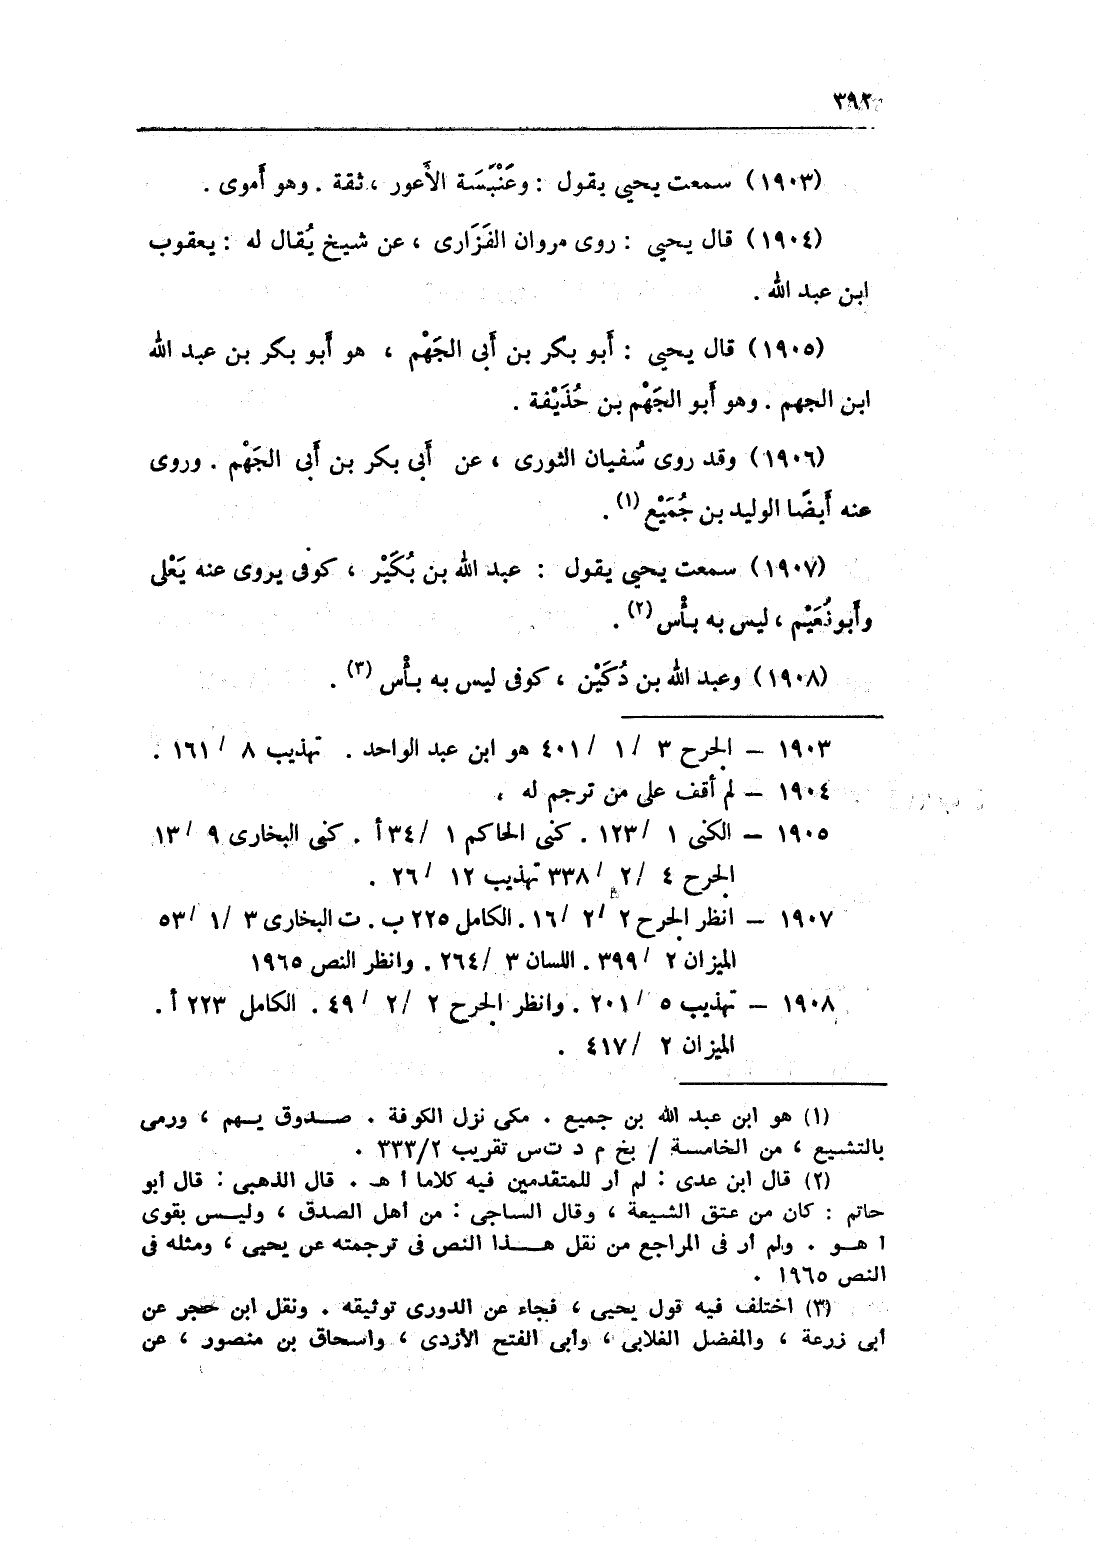 ٣٩٢
(١٩٠٣) سمعت يحيى يقول : وعَنْبَسَة الأعور ، ثقة . وهو أموى .
(١٩٠٤) قال يحيى : روى مروان الفَزَارى ، عن شيخ يُقال له : يعقوب
ابن عبد الله .
(١٩٠٥) قال يحيى : أبو بكر بن أبى الجَهْم ، هو أبو بكر بن عبد الله
ابن الجهم . وهو أبو الجَهْم بن حُذَيْفة .
(١٩٠٦) وقد روى سُفيان الثورى ، عن أبى بكر بن أبى الجَهْم . وروى
عنه أيضًا الوليد بن جُمَيْع (١) .
(١٩٠٧) سمعت يحيى يقول : عبد الله بن بُكَيْر ، كوفى يروى عنه يَعْلى
وأبو نُعَيْم ، ليس به بأْس (٢) .
(١٩٠٨) وعبد الله بن دُكَيْن ، كوفى ليس به بأْس (٣) .
١٩٠٣ – الجرح ٣ /١ /٤٠١ هو ابن عبد الواحد . تهذيب ٨ /١٦١ .
١٩٠٤ – لم أقف على من ترجم له ،
١٩٠٥ – الكنى ١ /١٢٣ . كنى الحاكم ١ /٣٤أ . كنى البخارى ٩ /١٣
الجرح ٤ /٢ /٣٣٨ تهذيب ١٢ /٢٦ .
١٩٠٧ – انظر الجرح ٢ /٢ /١٦ . الكامل ٢٢٥ ب . ت البخارى ٣ /١ /٥٣
الميزان ٢ /٣٩٩ . اللسان ٣ /٢٦٤ . وانظر النص ١٩٦٥
١٩٠٨ – تهذيب ٥ /٢٠١ . وانظر الجرح ٢ /٢ /٤٩ . الكامل ٢٢٣ أ .
الميزان ٢ /٤١٧ .
(١) هو ابن عبد الله بن جميع . مكى نزل الكوفة . صدوق يهم ، ورمى
بالتشيع ، من الخامسة / بخ م د ت س تقريب ٣٣٣/٢ .
(٢) قال ابن عدى : لم أر للمتقدمين فيه كلاما أ هـ . قال الذهبى : قال أبو
حاتم : كان من عتق الشيعة ، وقال الساجى : من أهل الصدق ، وليس بقوى
ا هـو . ولم أر فى المراجع من نقل هذا النص فى ترجمته عن يحيى ، ومثله فى
النص ١٩٦٥ .
(٣) اختلف فيه قول يحيى ، فجاء عن الدورى توثيقه . ونقل ابن حجر عن
أبى زرعة ، والمفضل الغلابى ، وأبى الفتح الأزدى ، واسحاق بن منصور ، عن